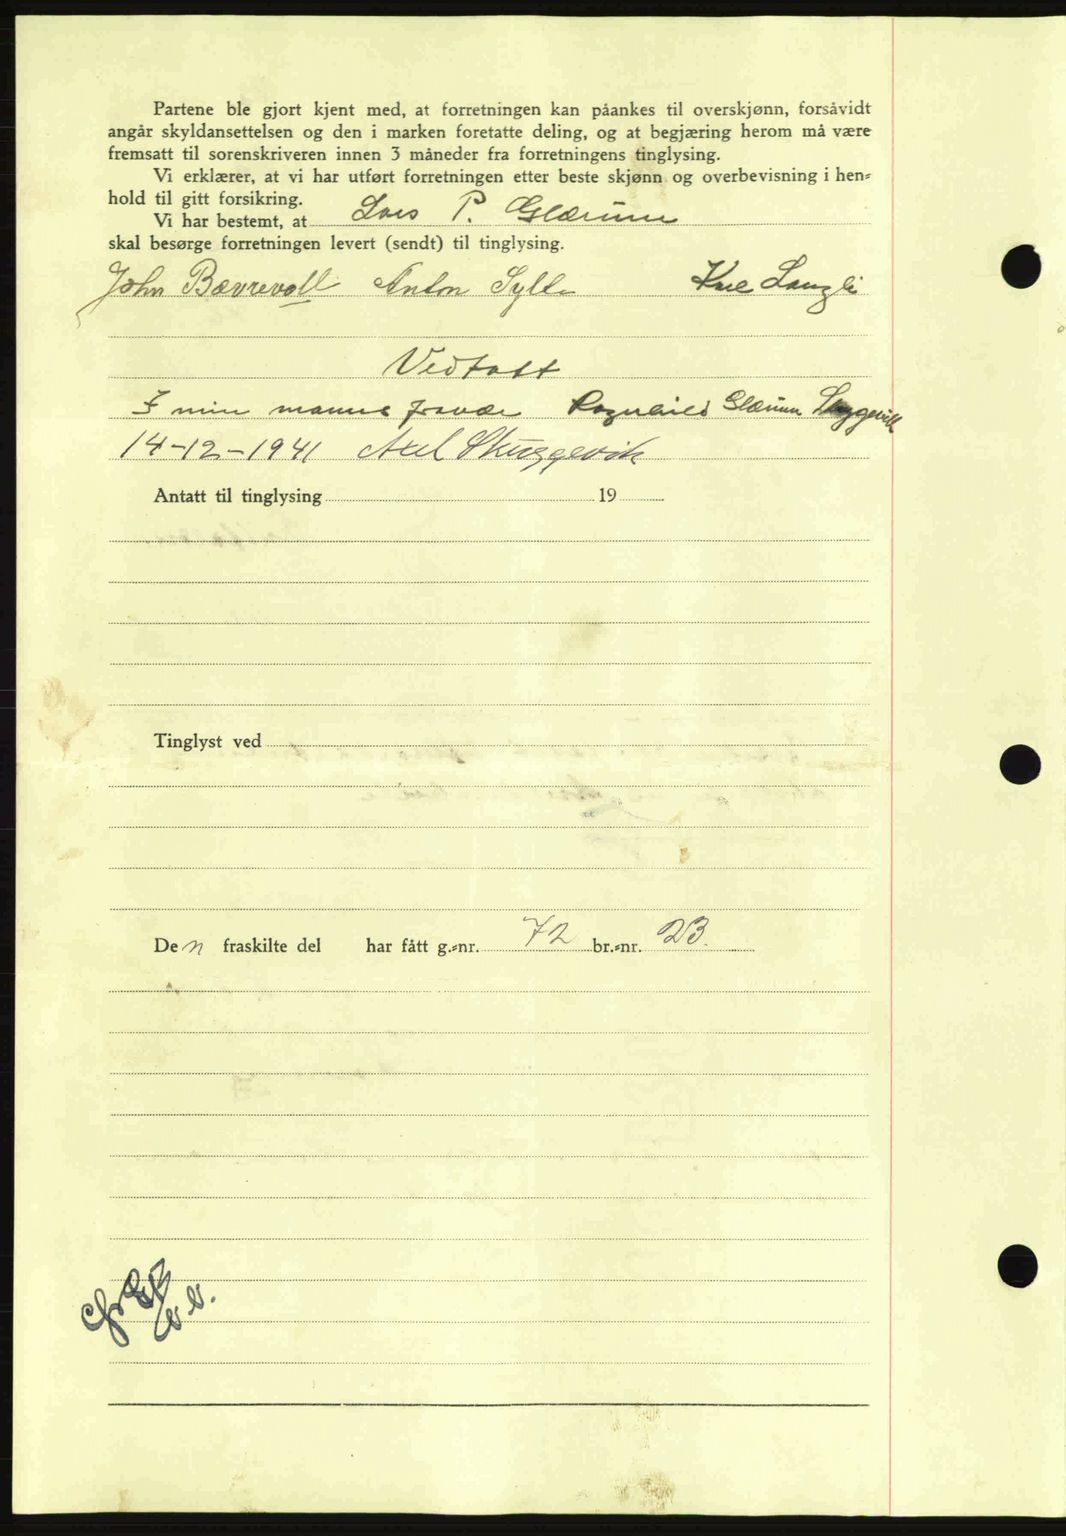 Partene ble gjort kjent med, at forretningen kan påankes til overskjønn, forsåvidt
angår skyldansettelsen og den i marken foretatte deling, og at begjæring herom må være
fremsatt til sorenskriveren innen 3 måneder fra forretningens tinglysing.
Vi erklærer, at vi har utført forretningen etter beste skjønn og overbevisning i hen-
hold til gitt forsikring.
Vi har bestemt, at Lars P. Glærum
skal besørge forretningen levert (sendt) til tinglysing.
John Bævrevoll Anton Sylte Karl Langli
Vedtatt
I min manns fravær Ragnhild Glærum Skuggevik
14-12-1941 Axel Skuggevik
Antatt til tinglysing 19
Tinglyst ved
De n fraskilte del har fått g.-nr. 72 br.-nr. 23.